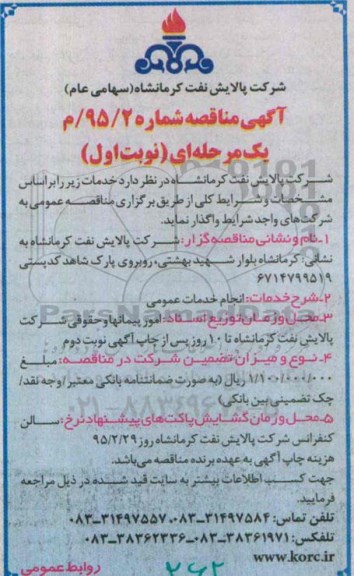 شرکت پالایش نفت کرمانشاه(سهامی عام)
آگهی مناقصه شماره ۹۵/۲/م
یک مرحله‌ای (نوبت اول)
شرکت پالایش نفت کرمانشاه در نظر دارد خدمات زیر را براساس
مشخصات و شرایط کلی از طریق برگزاری مناقصه عمومی به
شرکت‌های واجد شرایط واگذار نماید.
۱_نام و نشانی مناقصه‌گزار: شرکت پالایش نفت کرمانشاه به
نشانی: کرمانشاه بلوار شهید بهشتی، روبروی پارک شاهد کدپستی
۶۷۱۴۷۹۹۵۱۹
۲_شرح خدمات: انجام خدمات عمومی
۳_محل و زمان توزیع اسناد: امور پیمانها و حقوقی شرکت
پالایش نفت کرمانشاه تا ۱۰ روز پس از چاپ آگهی نوبت دوم
۴_نوع و میزان تضمین شرکت در مناقصه: مبلغ
۱/۱۰۰/۰۰۰/۰۰۰ ریال (به صورت ضمانتنامه بانکی معتبر/وجه نقد/
چک تضمینی بین بانکی)
۵_محل و زمان گشایش پاکت‌های پیشنهاد نرخ: سالن
کنفرانس شرکت پالایش نفت کرمانشاه روز ۹۵/۲/۲۹
هزینه چاپ آگهی به عهده برنده مناقصه می‌باشد.
جهت کسب اطلاعات بیشتر به سایت قید شده در ذیل مراجعه
فرمایید.
تلفن تماس: ۳۱۴۹۷۵۸۴_۰۸۳، ۳۱۴۹۷۵۵۷_۰۸۳
تلفکس: ۳۸۳۶۱۹۷۱_۰۸۳، ۳۸۳۶۲۳۳۶_۰۸۳
www.korc.ir
روابط عمومی
۲۶۲